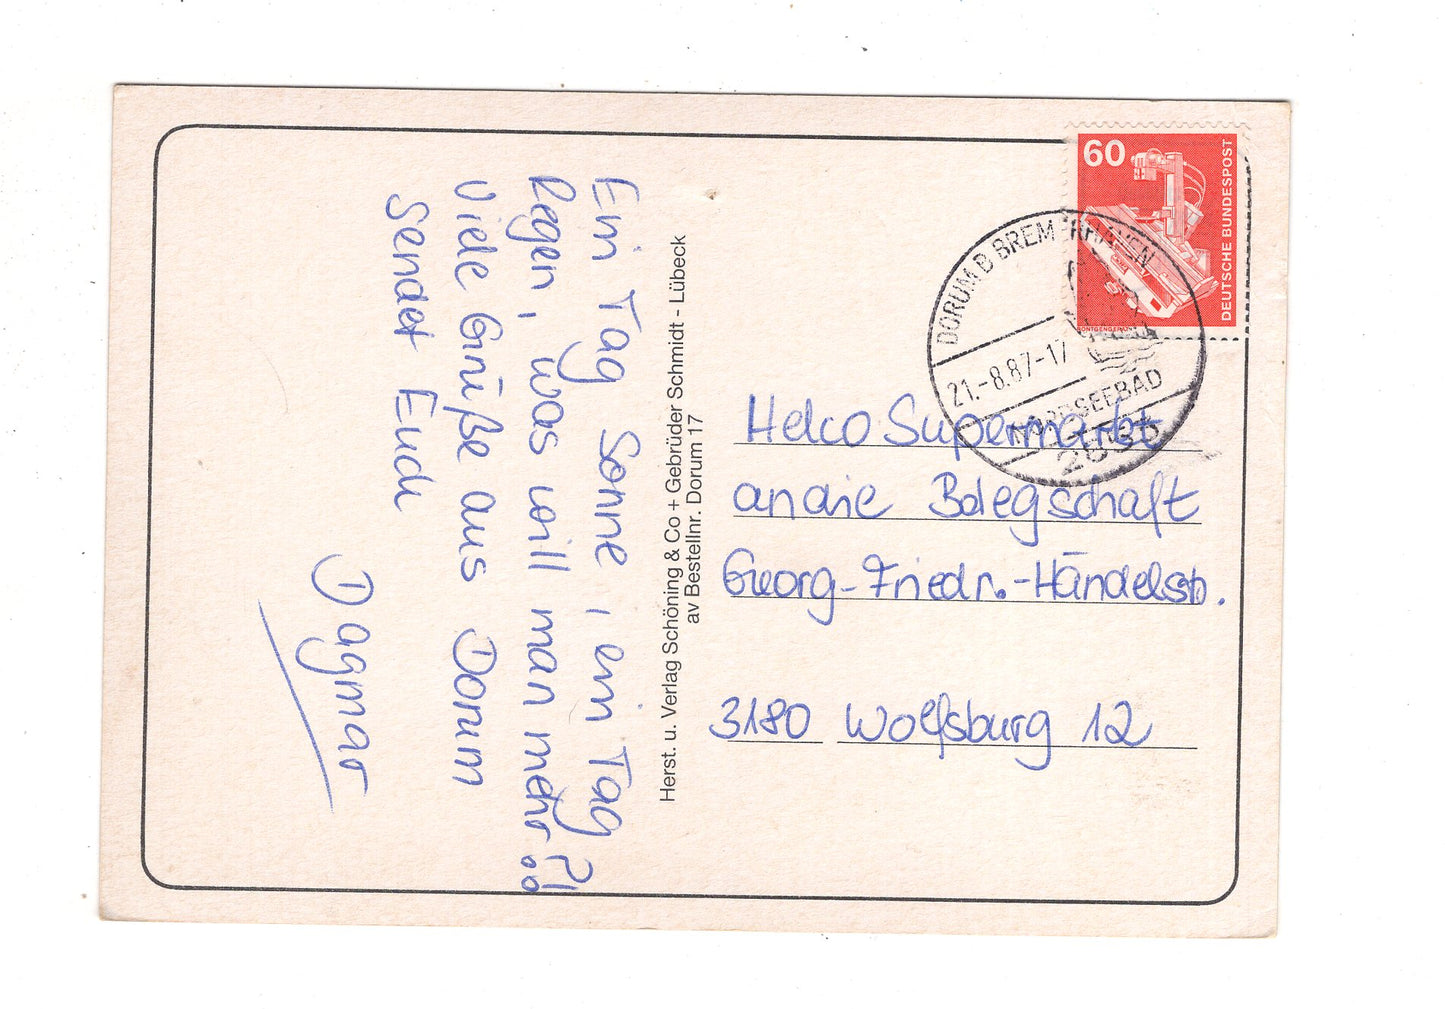 Ein Tag Sonne, ein Tag
Regen, was will man mehr?!
Viele Grüße aus Dorum
Sendet Euch
Dagmar
Herst. u. Verlag Schöning & Co + Gebrüder Schmidt - Lübeck
av Bestellnr. Dorum 17
60
DEUTSCHE BUNDESPOST
DORUM B BREMERHAVEN
21.-8.87-17
NORDSEEBAD
Helco Supermarkt
an die Belegschaft
Georg-Friedr.-Händelstr.
3180 Wolfsburg 12